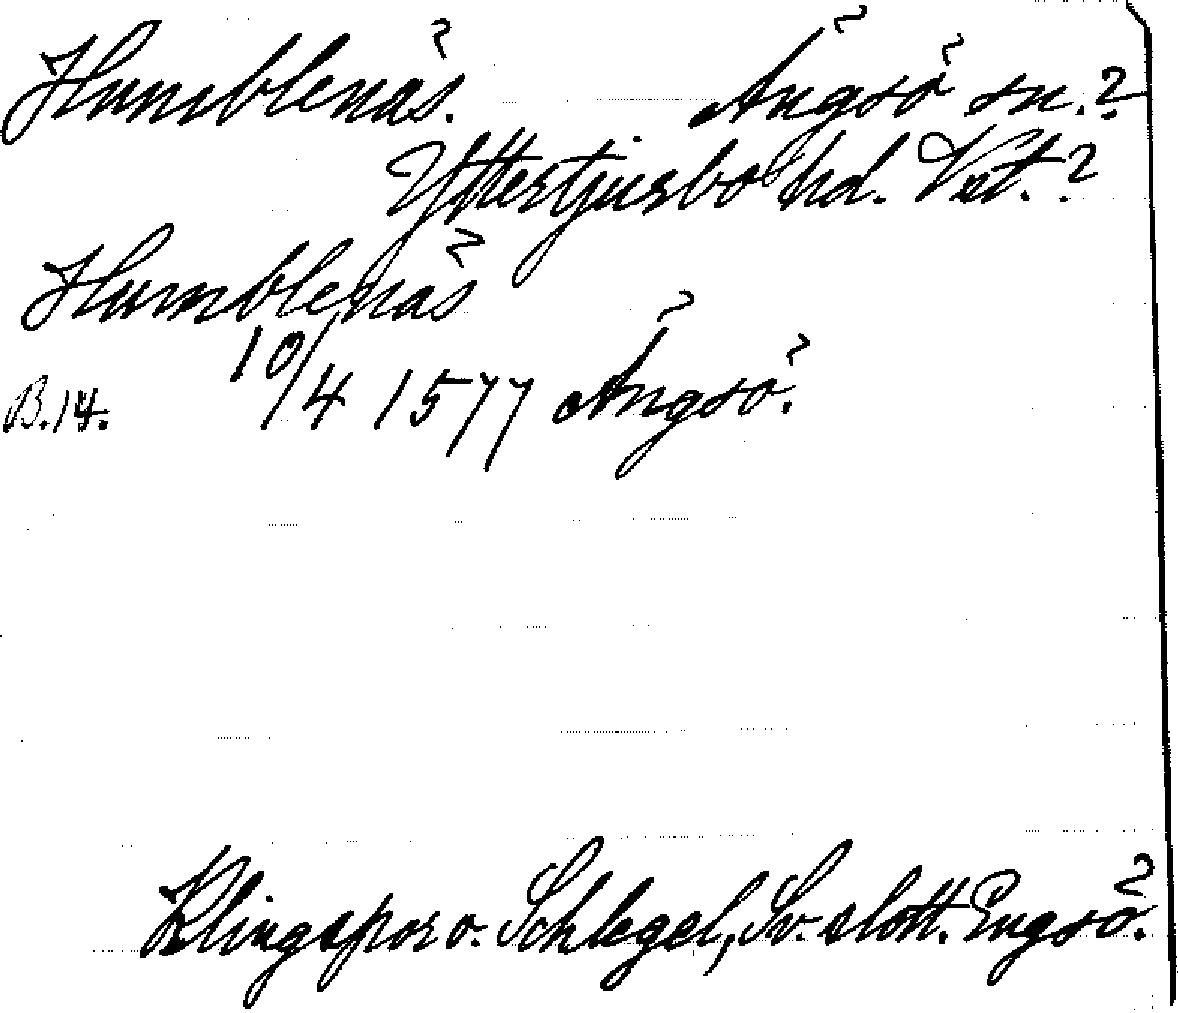 Humblenäs. Ängsö sn.?
Yttertjurbo hd. Vst.?
Humblenäs
10/4 1577 Ängsö.
B.14.
Klingspor o. Schlegel, Sv. slott. Engsö.